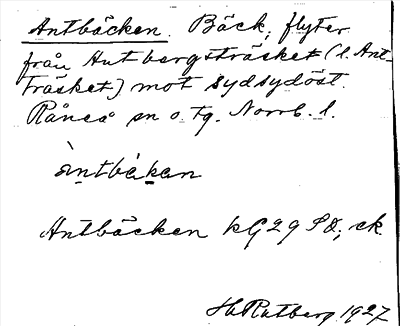 Antbäcken. Bäck, flyter
från Antbergsträsket (l. Ant-
träsket) mot sydsydöst.
Råneå sn o. tg. Norrb. l.
àntbä̀kan
Antbäcken kG29 SO; ek.
H. Rutberg 1927